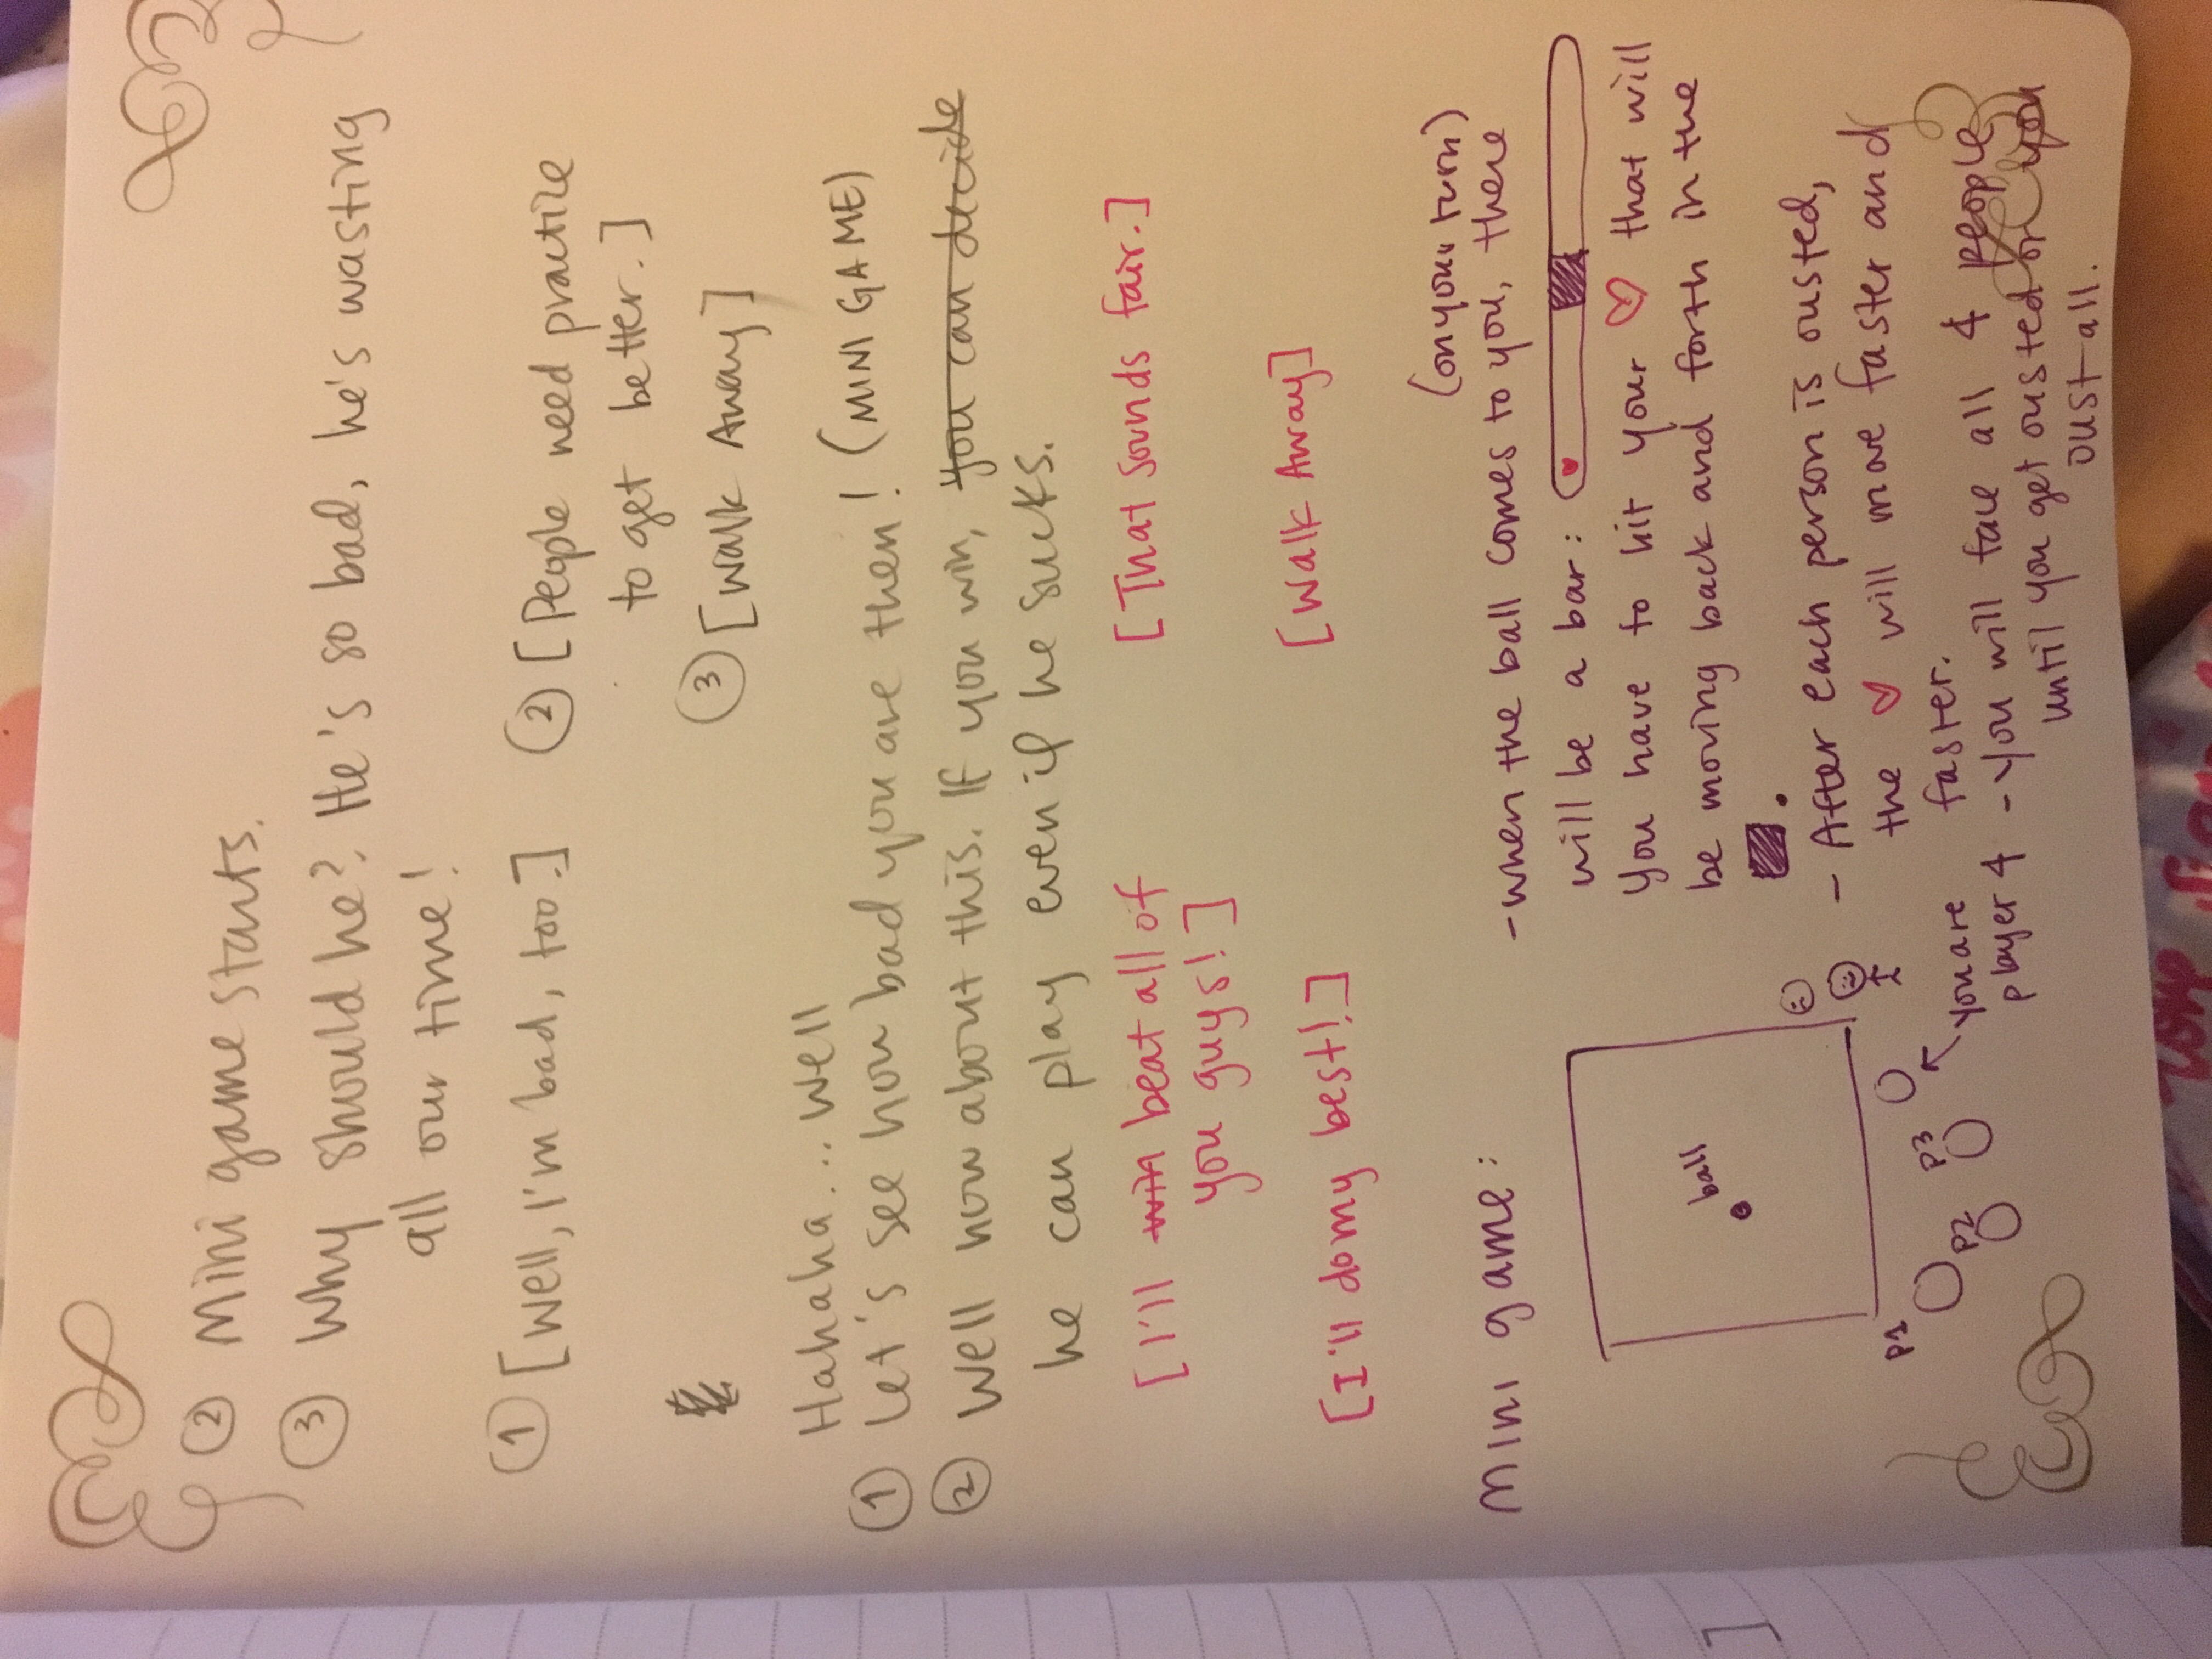 ② Mini game starts.
③ Why should he? He's so bad, he's wasting
all our time!
① [Well, I'm bad, too.]
② [People need practice
to get better.]
③ [Walk Away]
Hahaha... Well
① Let's see how bad you are then! (MINI GAME)
② Well how about this. If you win, you can decide
he can play even if he sucks.
[I'll win beat all of
you guys!]
[That sounds fair.]
[I'll do my best!]
[Walk Away]
Mini game:
(on your turn)
- when the ball comes to you, there
will be a bar:
You have to hit your ♡ that will
be moving back and forth in the
.
ball
- After each person is ousted,
the ♡ will move faster and
faster.
P1
P2
P3
you are
player 4
- You will face all 4 people
until you get ousted or you
oust all.
]